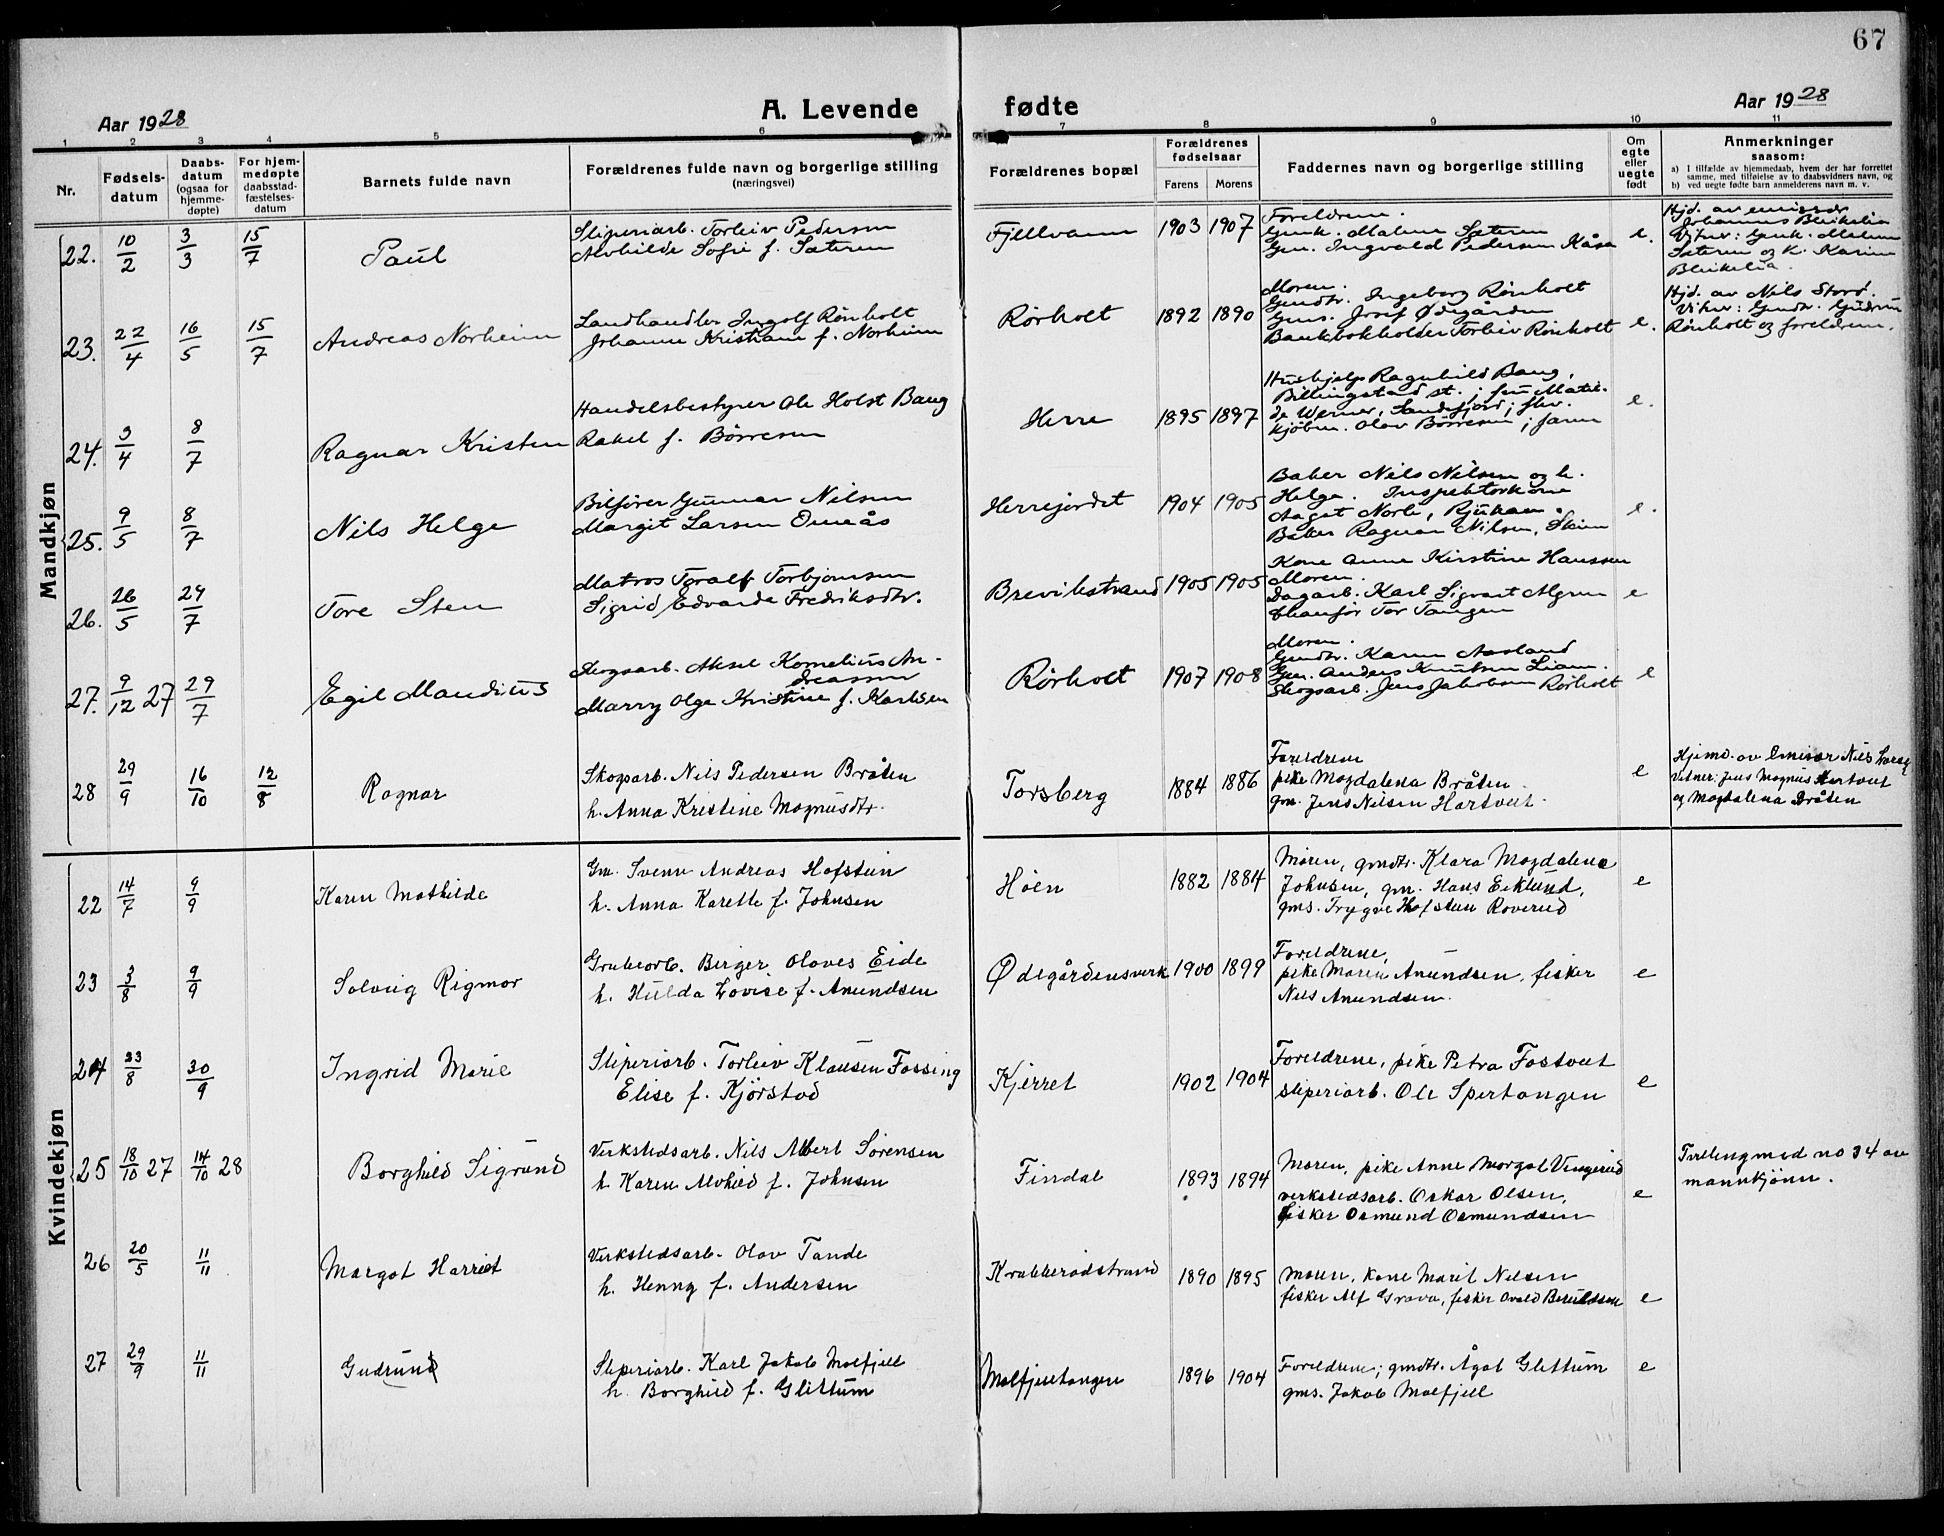 67
Aar 1928
A. Levende fødte
Aar 1928
1 2 3 4 5 6 7 8 9 10 11
Nr.
Fødsels-
datum
Daabs-
datum
(ogsaa for
hjemme-
døpte)
For hjem-
medøpte
daabsstad-
fæstelses-
datum
Barnets fulde navn
Forældrenes fulde navn og borgerlige stilling
(næringsvei)
Forældrenes bopæl
Forældrenes
fødselsaar
Farens Morens
Faddernes navn og borgerlige stilling
Om
egte
eller
uegte
født
Anmerkninger
saasom:
a) I tilfælde av hjemmedaab, hvem der har forrettet
samme, med tilføielse av to daabsvidners navn, og
b) ved uegte fødte barn anmelderens navn m. v.
Mandkjøn
22. 10/2 3/3 15/7 Paul
Sliperiarb. Torleiv Pedersen
Alvhilde Sofie f. Sæteren
Fjellvann 1903 1907
Foreldrene.
Genk. Malene Sæteren
Gm. Ingvald Pedersen Kåsa
e.
Hjd. av emissær
Johannes Bleikelia
Vitner: Genk. Malene
Sæteren og k. Karine
Bleikelia.
23. 22/4 16/5 15/7 Andreas Norheim
Landhandler Ingolf Rønholt
Johanne Kristiane f. Norheim
Rørholt 1892 1890
Moren.
Gmdtr. Ingeborg Rønholt
Gms. Josef Ødegården
Bankbokholder Torleiv Rønholt
e.
Hjd. av Nils Stord.
Vitner: Gmdtr. Gudrun
Rønholt og foreldrene.
24. 3/4 8/7 Ragnar Kristen
Handelsbestyrer Ole Holst Bang
Rakel f. Børresen
Herre 1895 1897
Hushjelp Ragnhild Bang,
Billingstad st.; fru Matil-
de Werner, Sandefjord; fhv.
kjøbm. Olav Børresen; faren
e.
25. 9/5 8/7 Nils Helge
Bilfører Gunnar Nilsen
Margit Larsen Omeås
Herrejordet 1904 1905
Baker Nils Nilsen og h.
Helga. Inspektørkone
Aagot Norli, Rjukan.
Baker Ragnar Nilsen, Skien
e.
26. 26/5 24/7 Tore Sten
Matros Toralf Torbjørnsen
Sigrid Edvarda Fredriksdtr.
Brevikstrand 1905 1905
Kone Anne Kirstine Hanssen
Moren.
Dagarb. Karl Sigvart
Chauffør Tor Tangen
e
27. 9/12 27 29/7 Egil Maudius
Skogsarb. Aksel Kornelius An-
dreassen
Marry Olga Kristine f. Karlsen
Rørholt 1907 1908
Moren.
Gmdtr. Karen Aasland
Gm. Anders Knutsen Liane.
Skogsarb. Jens Jakobsen Rørholt
e
28 29/9 16/10 12/8 Ragnar
Skogsarb. Nils Pedersen Bråten
h. Anna Kristine Magnusdtr.
Torsberg 1884 1886
Foreldrene
pike Magdalena Bråten
gm. Jens Nilsen Hartveit.
e
Hjemd. av Emisær Nils
Vitner: Jens Magnus Hartveit
og Magdalena Bråten
Kvindekjøn
22 14/7 9/9 Karen Mathilde
Gm. Svenn Andreas Hafsten
h. Anna Karette f. Johnsen
Høen 1882 1884
Moren, gmdtr. Klara Magdalena
Johnsen, gm. Hans Eeklund,
gms. Trygve Hafsten Roverud
e
23 3/8 9/9 Solveig Rigmor
Grubearb. Birger Olaves Eide
h. Hulda Lovise f. Amundsen
Ødegårdensverk 1900 1899
Foreldrene,
pike Maren Amundsen, fisker
Nils Amundsen.
e
24 23/8 30/9 Ingrid Marie
Sliperiarb. Torleiv Klausen Fossing
Elise f. Kjørstad
Kjerret 1902 1904
Foreldrene, pike Petra Fostveit
sliperiarb. Ole Spertangen
e
25 18/10 27 14/10 28 Borghild Sigrund
Verkstedsarb. Nils Albert Sørensen
h. Karen Alvhild f. Johnsen
Findal 1893 1894
Moren, pike Anne Margot Vingereid
verkstedsarb. Oskar Olsen,
fisker Osmund Osmundsen
e
Tvilling med no 34 av
mannkjønn.
26 20/5 11/11 Margot Harriet
Verkstedsarb. Olav Tande
h. Henny f. Andersen
Krabberødstrand 1890 1895
Moren, kone Marit Nilsen
fisker Alf Grava, fisker Osvald
e
27 29/9 11/11 Gudrund
Sliperiarb. Karl Jakob Malfjell
h. Borghild f. Glittum
Malfjelltangen 1896 1904
Foreldrene; gmdtr. Ågot Glittum
gms. Jakob Malfjell
e